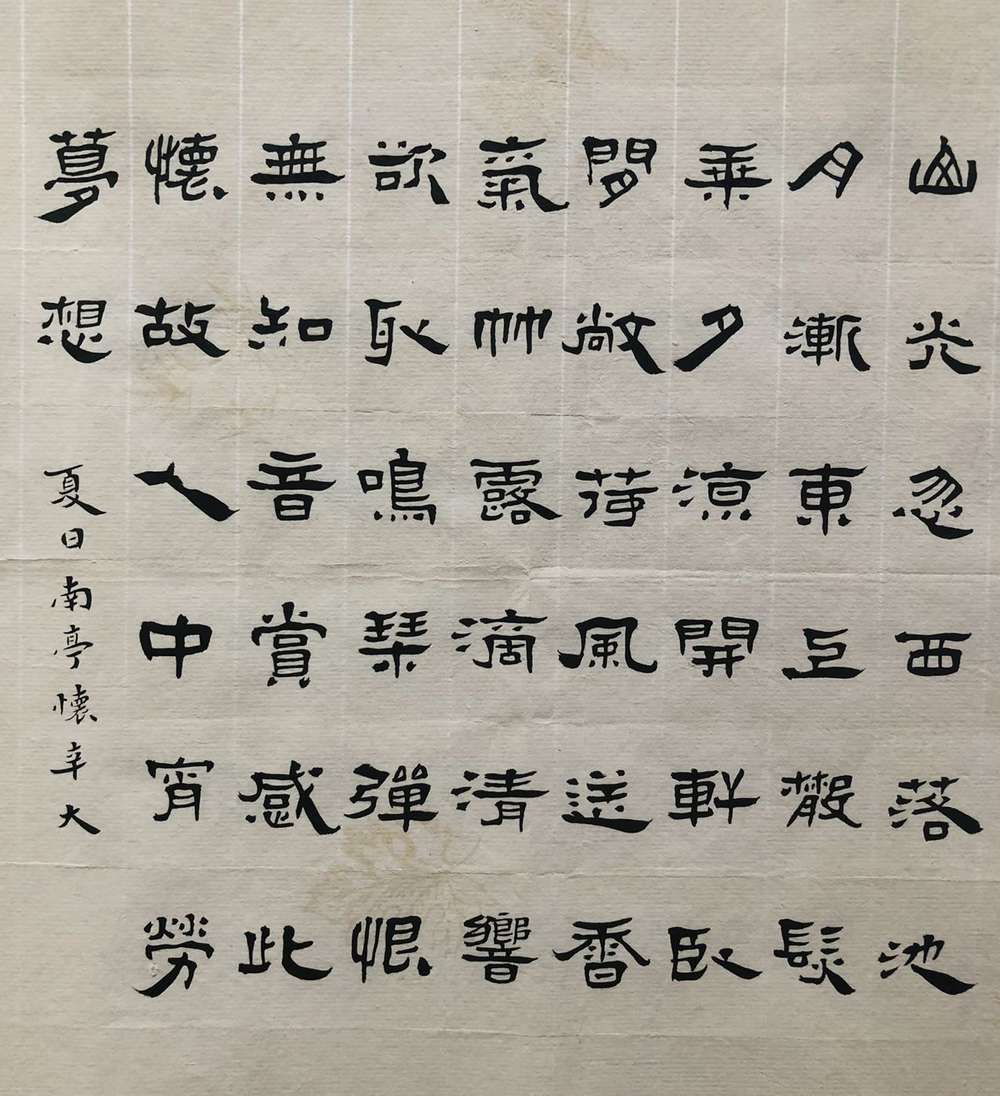 山光忽西落池
月漸東上散髮
乘夕涼開軒臥
閒敞荷風送香
氣竹露滴清響
欲取鳴琴彈恨
無知音賞感此
懷故人中宵勞
夢想
夏日南亭懷辛大